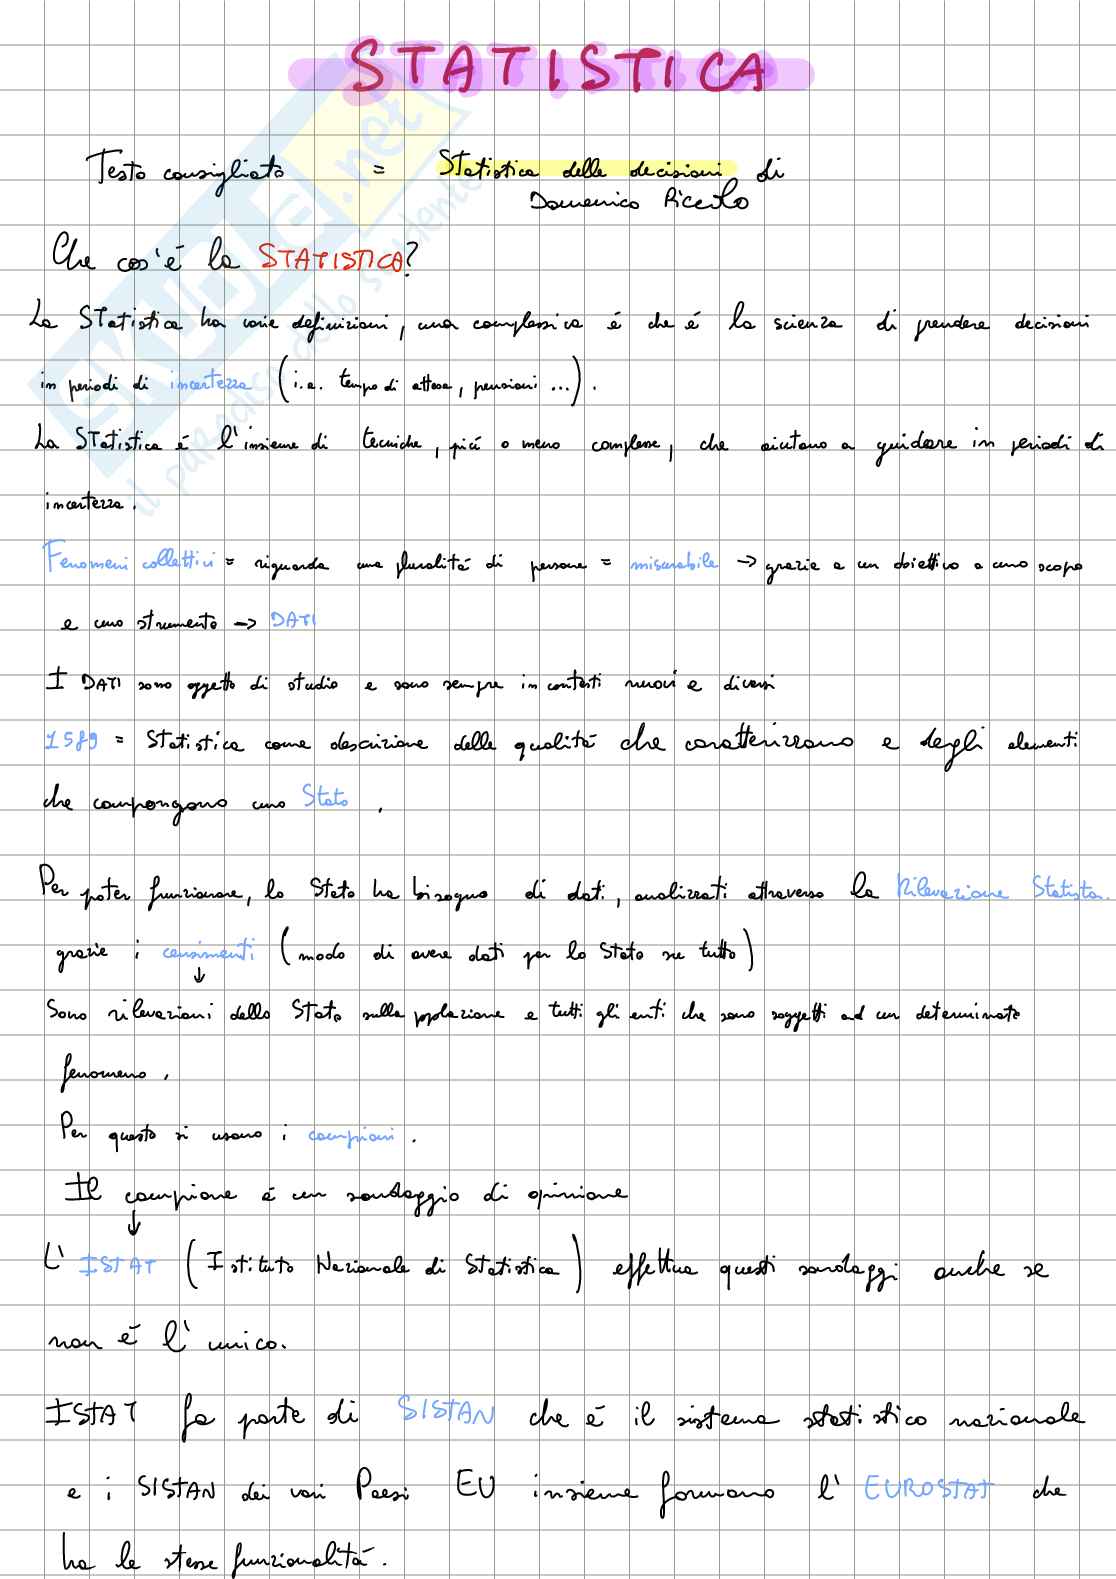 STATISTICA
Testo consigliato = Statistica delle decisioni di
Domenico Piccolo
Che cos'é la STATISTICA?
La Statistica ha varie definizioni, una complessiva é che é la scienza di prendere decisioni
in periodi di incertezza (i.e. tempo di attesa, pensioni ...).
La Statistica é l'insieme di tecniche, piú o meno complesse, che aiutano a guidare in periodi di
incertezza.
Fenomeni collettivi = riguarda una pluralitá di persone = misurabile → grazie a un obiettivo o uno scopo
e uno strumento → DATI
I DATI sono oggetto di studio e sono sempre in contesti nuovi e diversi
1589 = Statistica come descrizione delle qualitá che caratterizzano e degli elementi
che compongono uno Stato.
Per poter funzionare, lo Stato ha bisogno di dati, analizzati attraverso la Rilevazione Statistica
grazie i censimenti (modo di avere dati per lo Stato su tutto)
↓
Sono rilevazioni dello Stato sulla popolazione e tutti gli enti che sono soggetti ad un determinato
fenomeno.
Per questo si usano i campioni.
Il campione é un sondaggio di opinione
↓
L'ISTAT (Istituto Nazionale di Statistica) effettua questi sondaggi anche se
non é l'unico.
ISTAT fa parte di SISTAN che é il sistema statistico nazionale
e i SISTAN dei vari Paesi EU insieme formano l'EUROSTAT che
ha le stesse funzionalitá.
SKUOLA.net
il paradiso dello studente